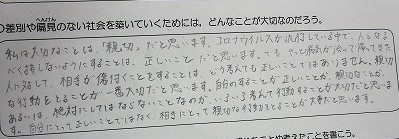 差別や偏見のない社会を築いていくためには。どんなことが大切なのだろう。
へんけん
私は大切なことは、「親切」だと思います。コロナウイルスが流行している中で、人となる
べく接しないようにすることは、正しいことだと思います。でも、やっと病気が治って帰ってきた
人に対して、相手が傷付くことをすることは、どう考えても正しいことではありません。親切
な行動をとることが一番大切だと思います。自分のすることが正しいことか、親切なことか、
あるいは、絶対にしてはならないことなのか、いろいろ考えて行動することが大切だと思いま
す。自分にとって正しいことではなく、相手にとって親切な行動をとることが大事だと思います。
考えたことを書こう。